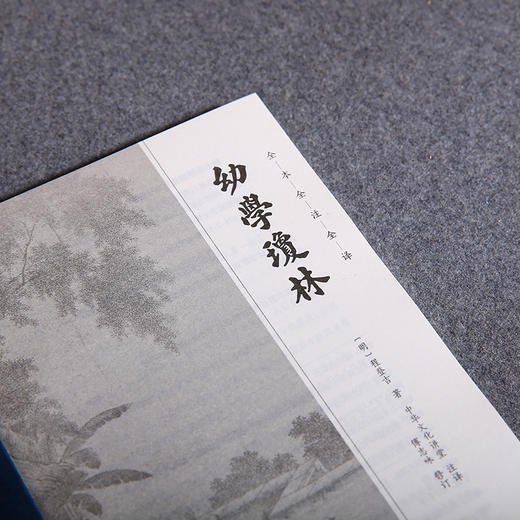 幼學瓊林
全本全注全译
〔明〕程登吉 著
中华文化讲堂 注译
傅志咏 修订